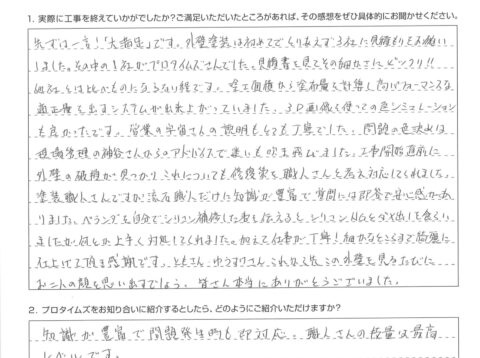 1. 実際に工事を終えていかがでしたか?ご満足いただいたところがあれば、その感想をぜひ具体的にお聞かせください。
先ずは一言!「大満足」です。外壁塗装は初めてでとりあえず3社に見積もりをお願い
しました。その中の1社がプロタイムズさんでした。見積書を見てその細かさにビックリ!!
他社とは比べものにならない程です。塗る面積から塗布量を計算し高パフォーマンスな
適正量を出すシステムが出来上がっていました。3D画像を使っての色シミュレーション
も良かったです。営業の さんの説明もとても丁寧でした。問題の色決めは
現場管理の神谷さんからのアドバイスで迷いも吹き飛びました。工事開始直前に
外壁の破損が見つかりこれについても修復案を職人さんも考え対応してくれました。
塗装職人さんですが流石職人だけに知識が豊富で質問には即答で安心感があ
りました。ベランダを自分でシリコン補修した事を伝えると、シリコンは とダメ出しを食らい
ましたが何とか上手く対処してくれました。加えて仕事が丁寧!細かなところまで綺麗に
仕上げて頂き感謝です。ともさん、ゆうすけさん、これから先この外壁を見るたびに
お二人の顔を思い出すでしょう。皆さん本当にありがとうございました。
2. プロタイムズをお知り合いに紹介するとしたら、どのようにご紹介いただけますか?
知識が豊富で問題発生時も即対応。職人さんの技量は最高
レベルです。